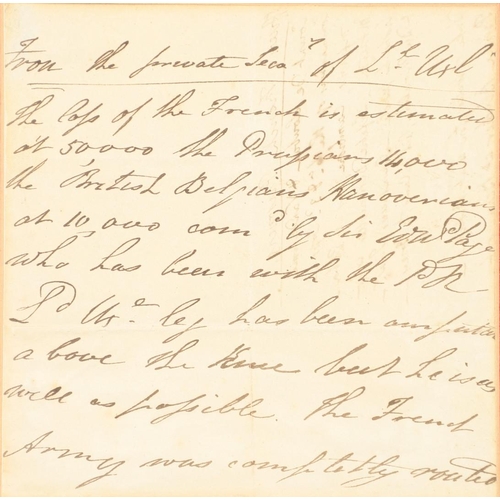 From the private Secy of Ld Uxl
The loss of the French is estimated
at 50000 the Prussians 14,000
the British Belgians Hanoverians
at 10,000 comd by Sir Edwd Page
who has been with the PR
Ld Ux- leg has been amputa
above the Knee but he is as
well as possible. The French
Army was completely routed